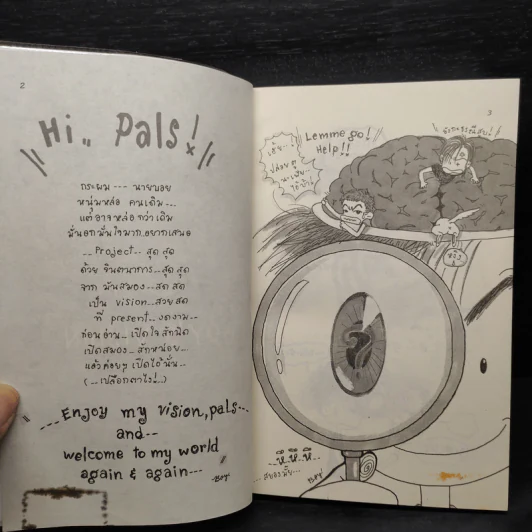 2
Hi,, Pals!
กระผม --- นายบอย
หนุ่มหล่อ คนเดิม...
แต่อาจหล่อกว่าเดิม
มั่นอกมั่นใจมาก..อยากเสนอ
-- Project-- สุด สุด
ด้วย จินตนาการ... สุด สุด
จาก มันสมอง-- สด สด
เป็น vision...สวย สด
ที่ present.. งดงาม---
ก่อนอ่าน.. เปิดใจ สักนิด
เปิดสมอง.. สักหน่อย...
แล้วค่อยๆ เปิดได้นั่น..
(...เปลือกตาไง!..)
---Enjoy my vision, pals---
and---
welcome to my world
again & again---
-Boy-
3
Lemme go!
Help!!
เฮ้ย..!
ปล่อยกู
หึ..หึ..หึ
... สยองมั้ย...
-Boy-